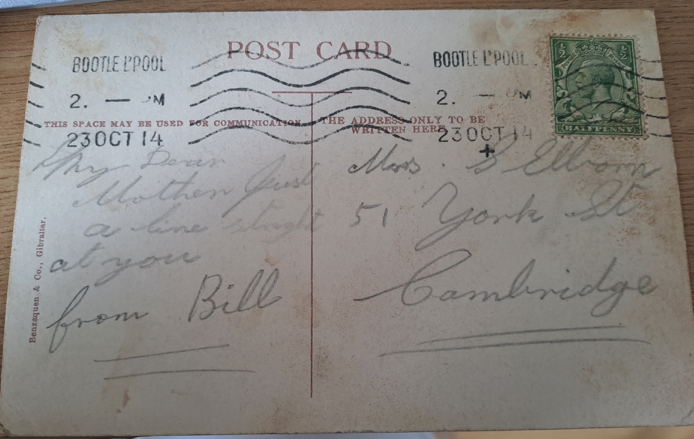 BOOTLE L'POOL
2. — PM
23 OCT 14
POST CARD
BOOTLE L'POOL
2. — PM
23 OCT 14
HALFPENNY
THIS SPACE MAY BE USED FOR COMMUNICATION.
THE ADDRESS ONLY TO BE
WRITTEN HERE
My Dear
Mother Just
a line
at you
from Bill
Mrs. S Elborn
51 York St
Cambridge
Benzaquen & Co., Gibraltar.